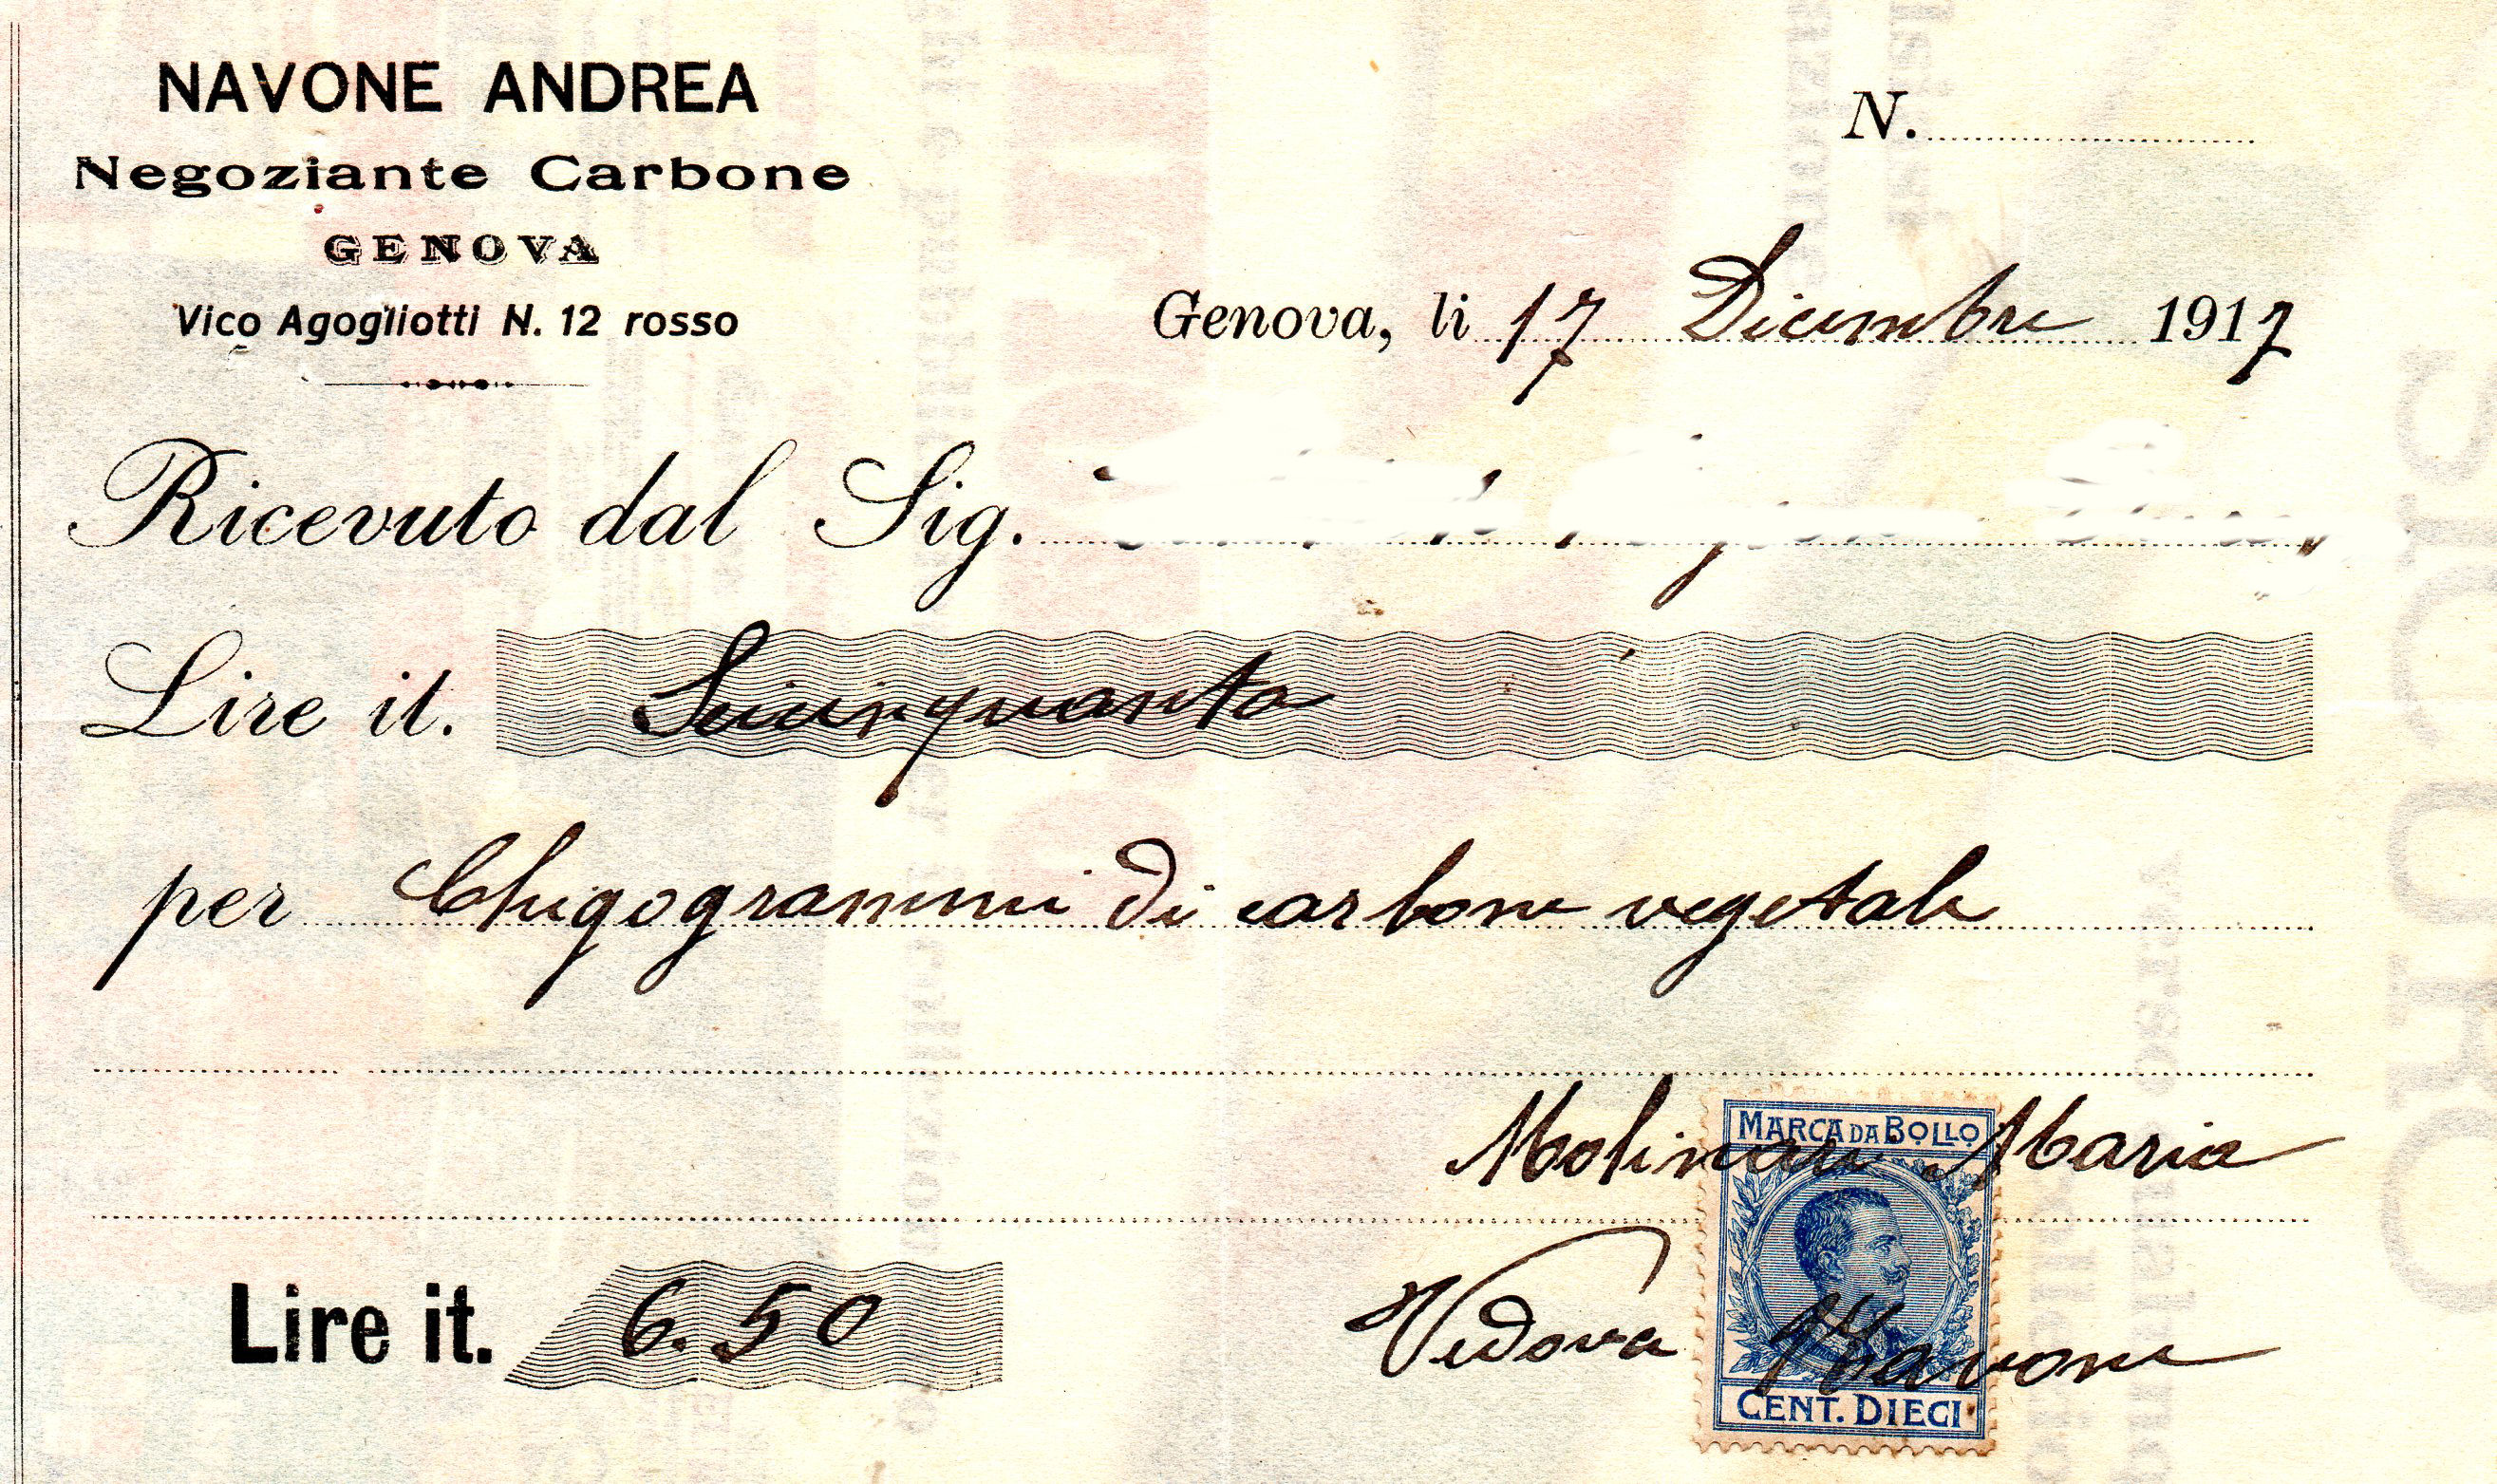 NAVONE ANDREA
Negoziante Carbone
GENOVA
Vico Agogliotti N. 12 rosso
N.
Genova, li 17 Dicembre 1917
Ricevuto dal Sig.
Lire it. Seicinquanta
per Chigogrammi di carbone vegetale
Molinari Maria
Vedova Navone
MARCA DA BOLLO
CENT. DIECI
Lire it. 6.50